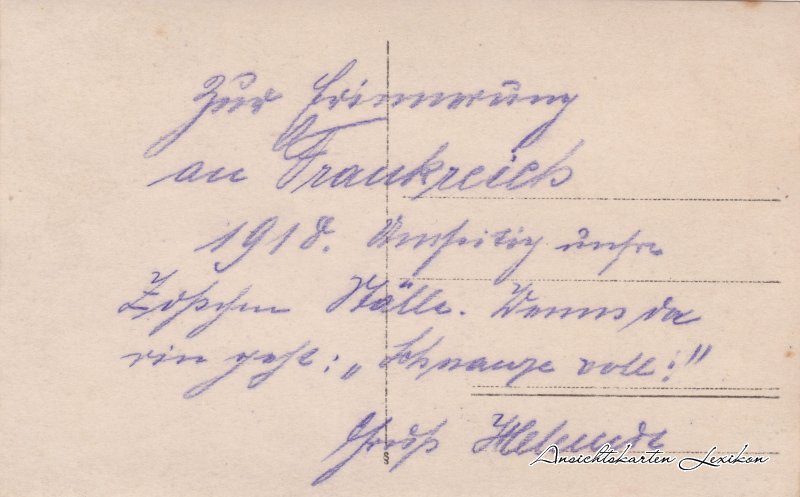 Zur Erinnerung
an Frankreich
1918. Umseitig unsre
Ställe. Wenns da
rin geht: „Schnauze voll!"
Gruß
Ansichtskarten Lexikon